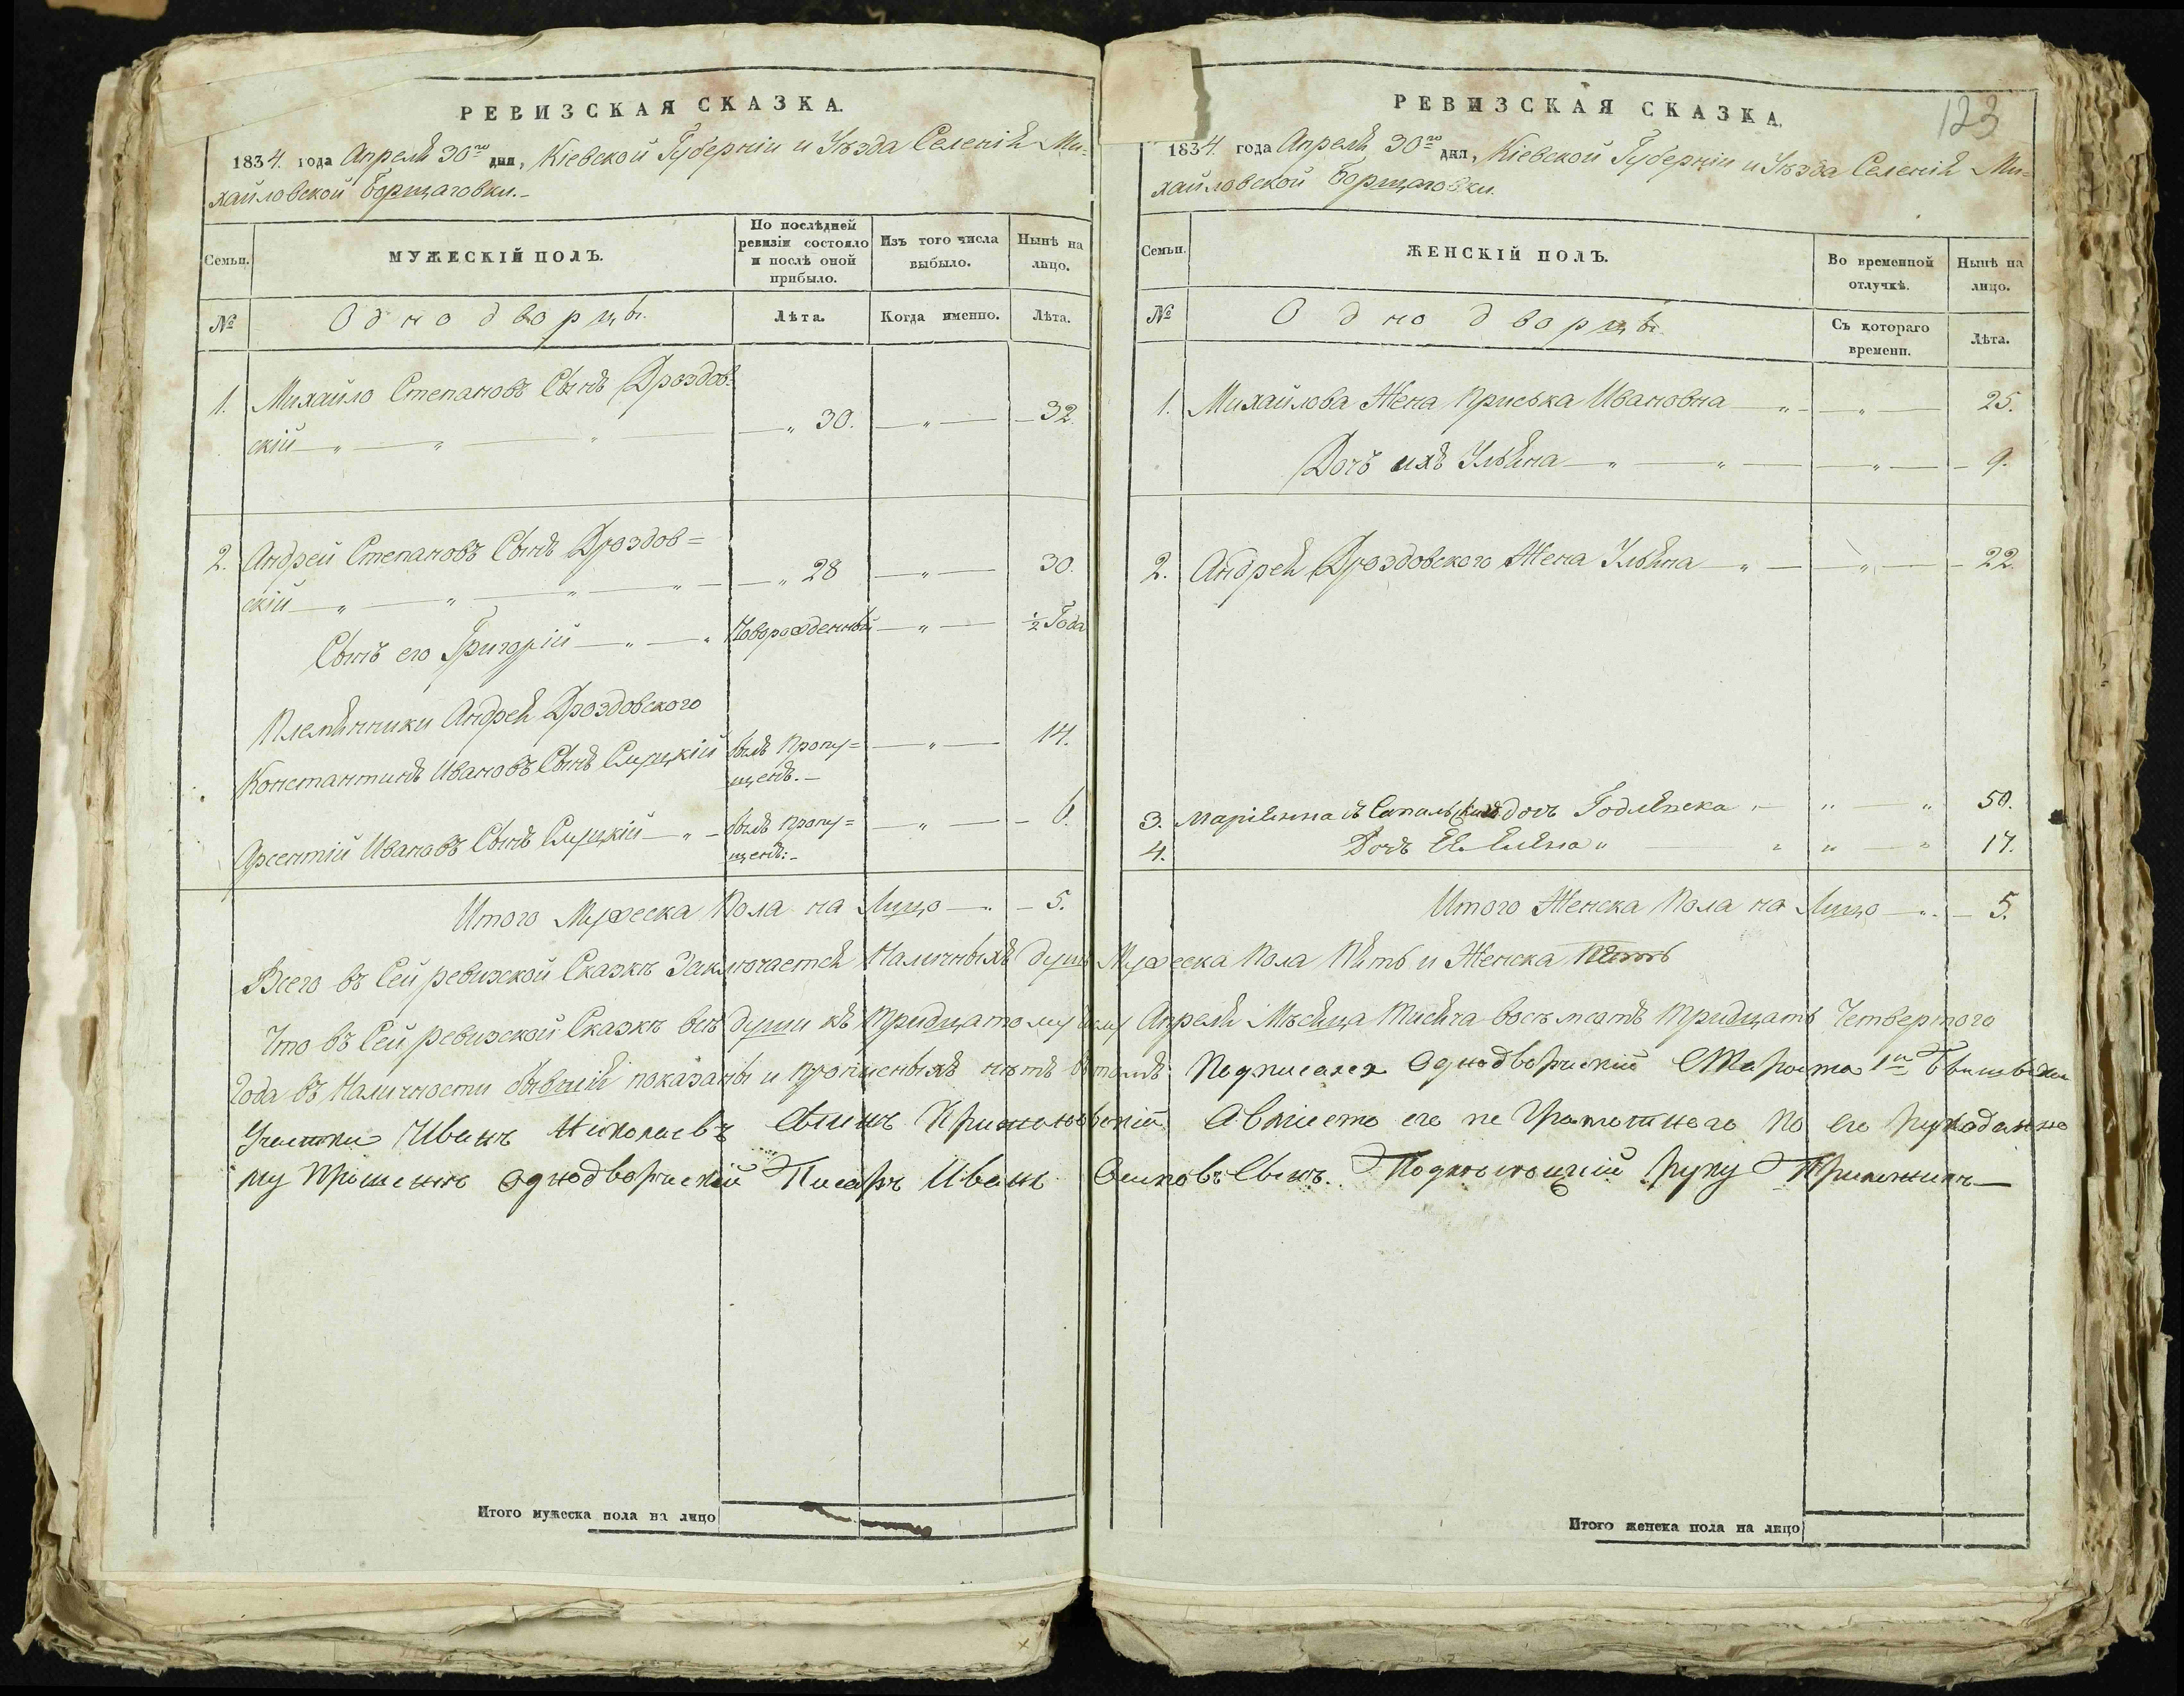 РЕВИЗСКАЯ СКАЗКА.
1834. года Апреля 30го дня, Кіевской Губерніи и Уѣзда Селенія Ми-
хайловской Борщаговки.-
Семьи.
МУЖЕСКІЙ ПОЛЪ.
По послѣдней
ревизіи состояло
и послѣ оной
прибыло.
Изъ того числа
выбыло.
Нынѣ на
лицо.
№
Однодворцы.
Лѣта.
Когда именно.
Лѣта.
1. Михайло Степановъ Сынъ Дроздов-
скій — „ — „ — „ — „ 30. — „ — 32.
2. Андрей Степановъ Сынъ Дроздов=
скій — „ — „ — „ — „ — „ 28 — „ — 30.
Сынъ его Григорій — „ — „ Новорожденный — „ — ½ Года
Племянники Андрея Дроздовского
Константинъ Ивановъ Сынъ Слуцкій былъ Пропу= — „ — 14.
щенъ.-
Арсентій Ивановъ Сынъ Слуцкій — „ — былъ Пропу= — „ — 6.
щенъ:-
Итого Мужеска Пола на Лицо — „ — 5.
РЕВИЗСКАЯ СКАЗКА.
123
1834. года Апреля 30го дня, Кіевской Губерніи и Уѣзда Селенія Ми=
хайловской Борщаговки.
Семьи.
ЖЕНСКІЙ ПОЛЪ.
Во временной
отлучкѣ.
Нынѣ на
лицо.
№
Однодворцы.
Съ котораго
времени.
Лѣта.
1. Михайлова Жена Приська Ивановна — „ — „ — 25.
Дочь ихъ Ульяна — „ — „ — „ — 9.
2. Андрея Дроздовского Жена Ульяна — „ — „ — 22.
3. Маріянна съ дочь „ — „ — „ 50.
4. Дочь „ — „ „ — „ 17.
Итого Женска Пола на Лицо — „ — 5.
Всего въ Сей ревизской Сказкѣ Заключается Наличныхъ душъ Мужеска Пола Пять и Женска Пять
Что въ Сей ревизской Сказкѣ всѣ души къ тридцатому числу Апреля Мѣсяца тисяча восѣмсотъ тридцать Четвертого
Года въ Наличности бывшія показаны и прописныхъ нѣтъ въ томъ Подписался Однодворческій Староста 1го
Участка Иванъ Николаевъ Сынъ А вместо его не Грамотного По его рукоданно
му Прошенію Однодворческій Писарь Иванъ Осиповъ Сынъ. руку Приложилъ—
Итого мужеска пола на лицо
Итого женска пола на лицо